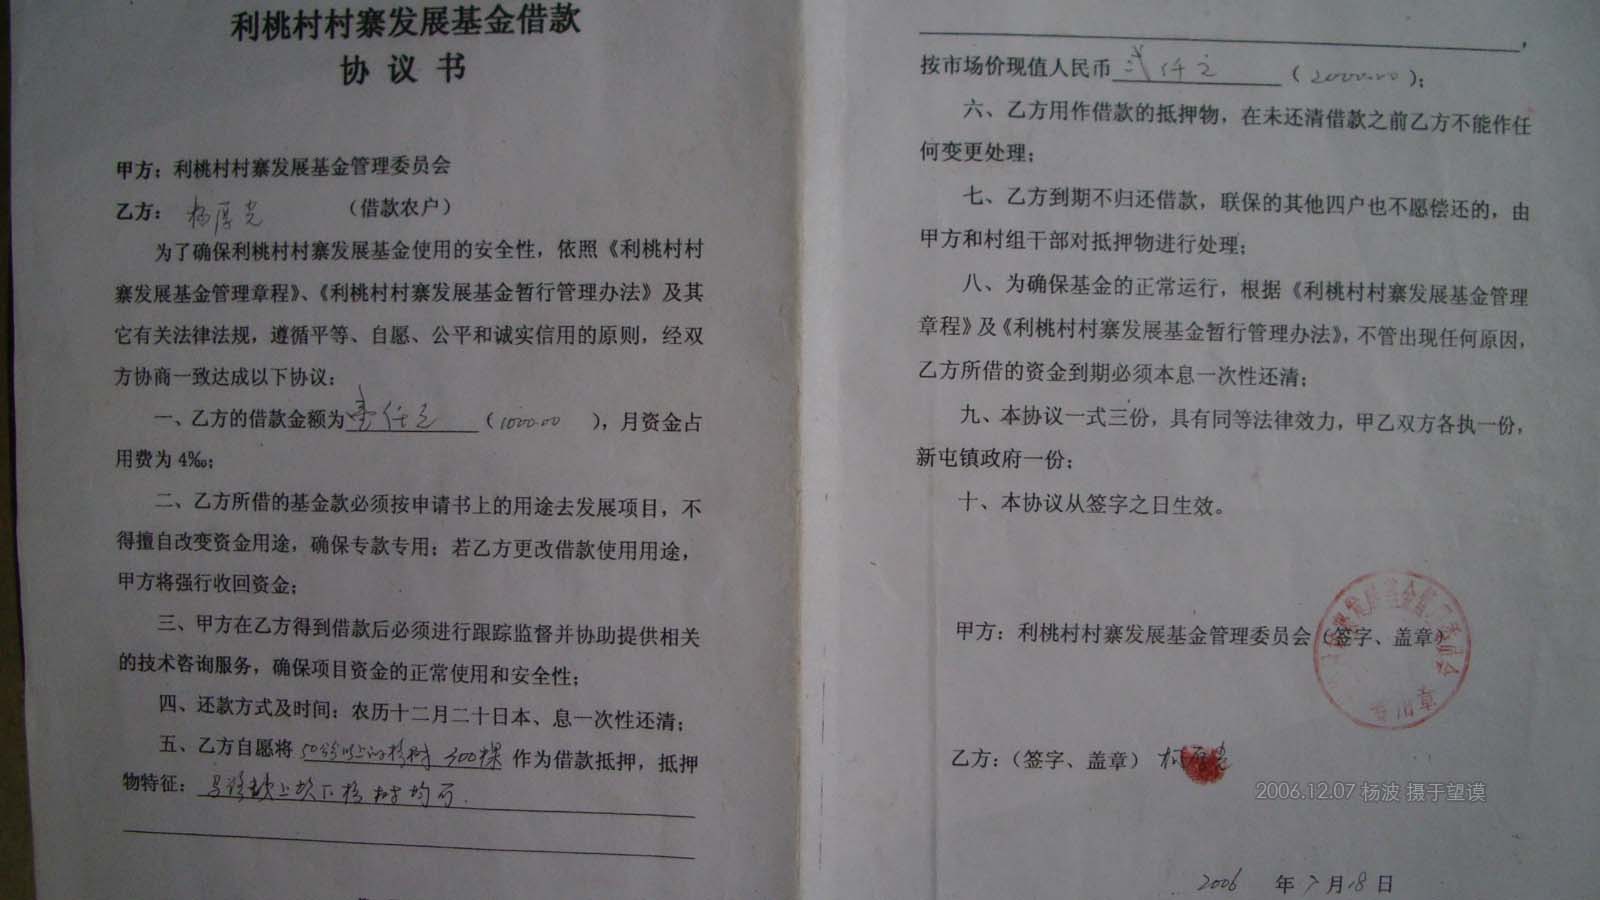 利桃村村寨发展基金借款
协议书
甲方：利桃村村寨发展基金管理委员会
乙方：杨厚光 （借款农户）
为了确保利桃村村寨发展基金使用的安全性，依照《利桃村村
寨发展基金管理章程》、《利桃村村寨发展基金暂行管理办法》及其
它有关法律法规，遵循平等、自愿、公平和诚实信用的原则，经双
方协商一致达成以下协议：
一、乙方的借款金额为壹仟元（1000.00），月资金占
用费为4‰；
二、乙方所借的基金款必须按申请书上的用途去发展项目，不
得擅自改变资金用途，确保专款专用；若乙方更改借款使用用途，
甲方将强行收回资金；
三、甲方在乙方得到借款后必须进行跟踪监督并协助提供相关
的技术咨询服务，确保项目资金的正常使用和安全性；
四、还款方式及时间：农历十二月二十日本、息一次性还清；
五、乙方自愿将 以上的杉树 作为借款抵押，抵押
物特征：
，
按市场价现值人民币贰仟元（2000.00）；
六、乙方用作借款的抵押物，在未还清借款之前乙方不能作任
何变更处理；
七、乙方到期不归还借款，联保的其他四户也不愿偿还的，由
甲方和村组干部对抵押物进行处理；
八、为确保基金的正常运行，根据《利桃村村寨发展基金管理
章程》及《利桃村村寨发展基金暂行管理办法》，不管出现任何原因，
乙方所借的资金到期必须本息一次性还清；
九、本协议一式三份，具有同等法律效力，甲乙双方各执一份，
新屯镇政府一份；
十、本协议从签字之日生效。
甲方：利桃村村寨发展基金管理委员会（签字、盖章）
乙方：（签字、盖章）杨厚光
2006.12.07 杨波 摄于望谟
2006 年 7 月 18 日